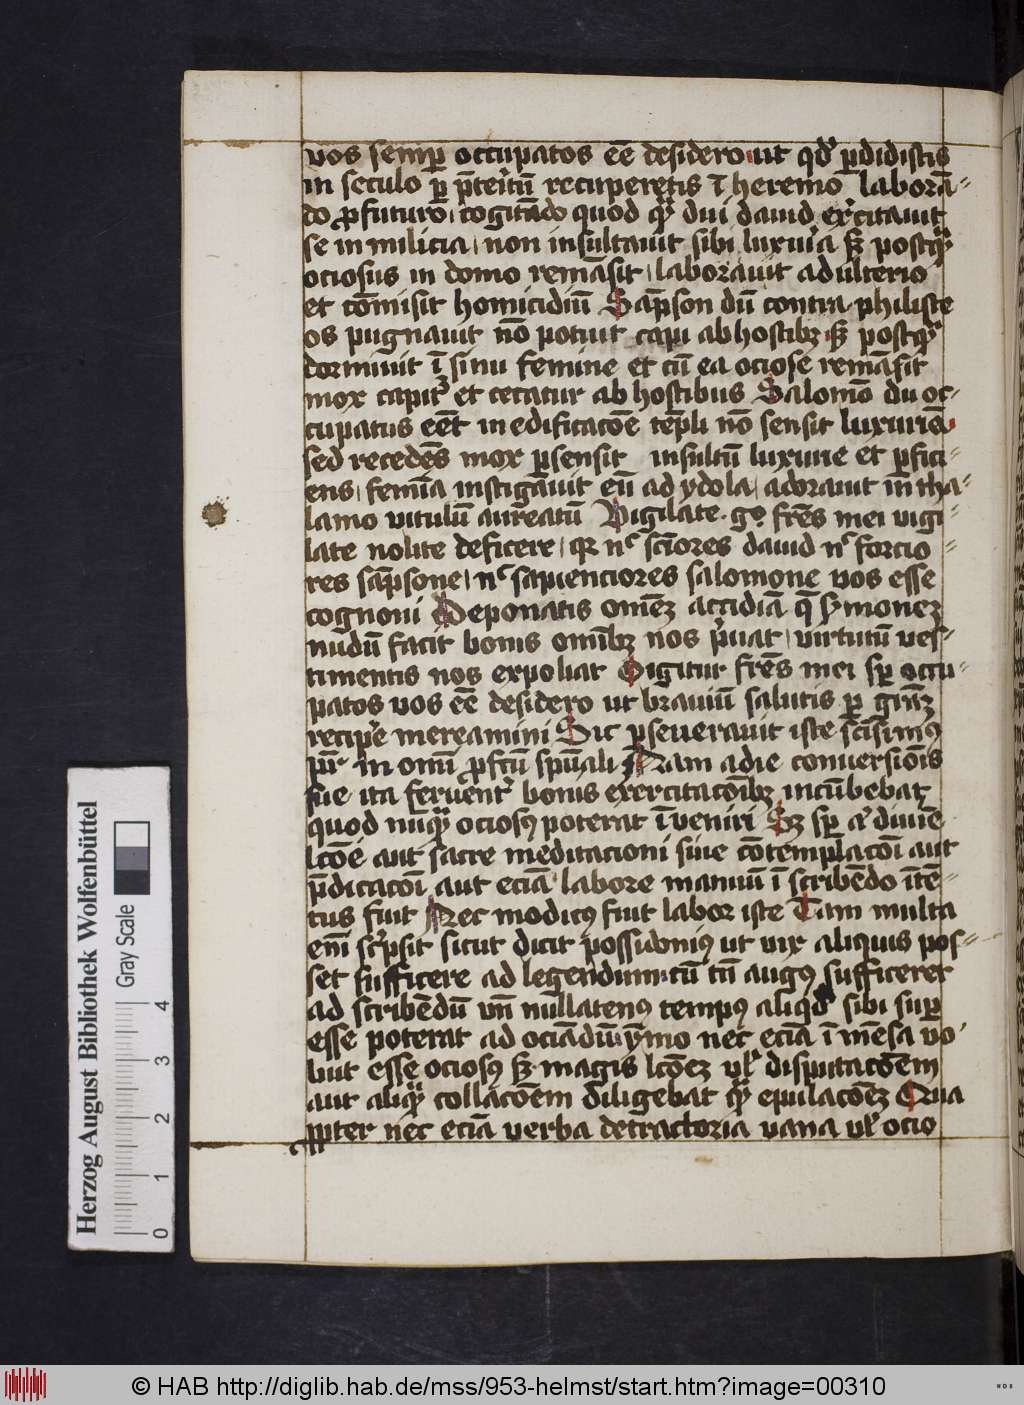 vos semꝑ occupatos eē desidero ut qd' ꝑdidistis
in seculo ꝑ p̄teritū recuperetis ī heremo laborā-
do ꝓfuturo cogitādo quod qͣ diu dauid exercitauit
se in milicia non insultauit sibi luxuria sꝫ postqͣ
ociosus in domo remāsit laborauit adulterio
et cōmisit homicidiū Sāpson dū contra philiste
os pugnauit nō potuit capi ab hostibꝫ sꝫ postqͣ
dormiuit ī sinu femine et cū ea ociose remāsit
mox capit' et cecatur ab hostibus Salomō du oc-
cupatus eēt in edificacōe tēpli nō sensit luxuriā
sed recedēs mox ꝑsensit insultū luxurie et ꝑfici-
ens femīa instigauit eū ad ydola adorauit in tha-
lamo vitulū aureatū Vigilate gͦ fr̄es mei vigi-
late nolite deficere qꝛ nͨ sc̄iores dauid nͨ forcio-
res sāpsone nͨ sapienciores salomone vos esse
cognoui Deponatis omēꝫ accidiā q̄ symoneꝫ
nudū facit bonis omībꝫ nos p'uat virtutū ves-
timentis nos expoliat Digitur fr̄es mei sꝑ occu-
patos vos eē desidero ut brauiū salutis ꝑ gr̄aꝫ
recip'e mereamini Sic ꝑseuerauit iste sc̄issimꝰ
pr̄ in omī ꝓfctū spūali Nam a die conuersiōis
sue ita feruent' bonis exercitacōībꝫ incūbebat
quod nuqͣ ociosꝰ poterat īueniri Sꝫ sꝑ aͭ diuīe
lcōēi aut sacre meditacioni siue cōtemplacōi aut
p̄dicacōi aut eciā labore manuū ī scribēdo ītē-
tus fuit Nec modicꝰ fuit labor iste Tam multa
em̄ sc'psit sicut dicit possidoniꝰ ut vix aliquis pos-
set sufficere ad legendum cū tn̄ augꝰ sufficeret
ad scribēdū vn̄ nullatenꝰ tempꝰ aliqd' sibi suꝑ
esse poterat ad ociādū ymo nec eciā ī mēsa vo-
luit esse ociosꝰ sꝫ magis lcōēꝫ vl' disputacōēm
aut aliqͣ collacōēm diligebat qͣ epulacōēꝫ Qua
ꝓpter nec eciā verba detractoria vana vl' ocio
Herzog August Bibliothek Wolfenbüttel
Gray Scale
0 1 2 3 4
© HAB http://diglib.hab.de/mss/953-helmst/start.htm?image=00310